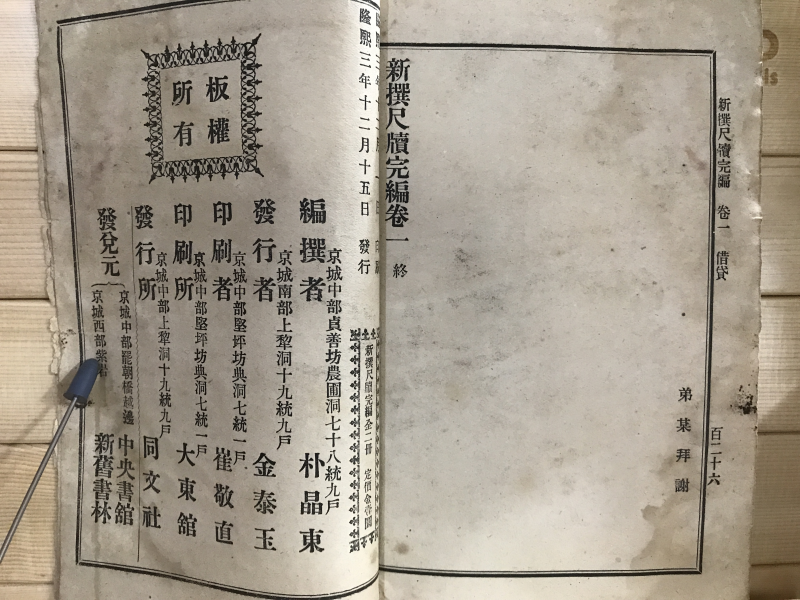 新撰尺牘完編 卷一 借貸
百二十六
弟某拜謝
新撰尺牘完編卷一 終
隆熙三年十二月十五日 發行
新撰尺牘完編全二冊 定價金壹圜
板權所有
編撰者 京城中部貞善坊農圃洞七十八統九戶 朴晶東
發行者 京城南部上犁洞十九統九戶 金泰玉
印刷者 京城中部堅坪坊典洞七統一戶 崔敬直
印刷所 京城中部堅坪坊典洞七統一戶 大東舘
發行所 京城中部上犁洞十九統九戶 同文社
發兌元
京城中部罷朝橋越邊 中央書舘
京城西部紫岩 新舊書林